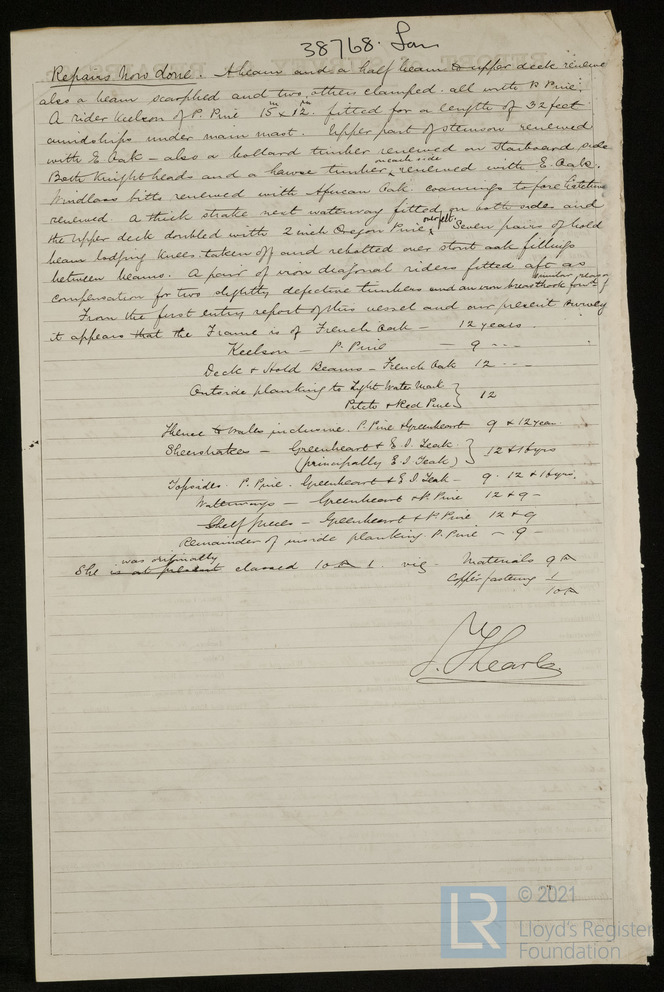 38768. Lon
Repairs now done. A beam and a half beam to upper deck renewed
also a beam scarphed and two others clamped. all with P. Pine.
A rider Keelson of P. Pine 15in x 12in. fitted for a length of 32 feet
amidships under main mast. Upper part of stemson renewed
with E. Oak – also a bollard timber renewed on Starboard side
Both Knightheads and a hawse timber on each side renewed with E. Oak.
Windlass bitts renewed with African Oak. coamings to fore
renewed A thick strake next waterway fitted on both sides and
the upper deck doubled with 2 inch Oregon Pine over felt. Seven pairs of hold
beam lodging knees taken off and rebolted over stout oak fillings
between beams. A pair of iron diagonal riders fitted aft as
compensation for two slightly defective timbers and an iron breasthook for similar reason
From the first entry report of this vessel and our present survey
it appears that the Frame is of French Oak – 12 years.
Keelson – P. Pine – 9 - - -
Deck & Hold Beams – French Oak 12 - - -
Outside planking to Light Water Mark
Pitch & Red Pine } 12
Thence to Wales inclusive. P. Pine & Greenheart 9 & 12 years
Sheerstrakes – Greenheart & E. I. Teak
(principally E I Teak) } 12 & 16 yrs
Topsides. P. Pine. Greenheart & E I Teak – 9. 12 & 16 yrs.
Waterways – Greenheart & P. Pine 12 & 9 –
Shelf pieces – Greenheart & P. Pine 12 & 9
Remainder of inside planking P. Pine – 9 –
She is at present was originally classed 10 A 1. viz – Materials 9 A
Copper fastening 1
10 A
© 2021
LR
Lloyd's Register
Foundation